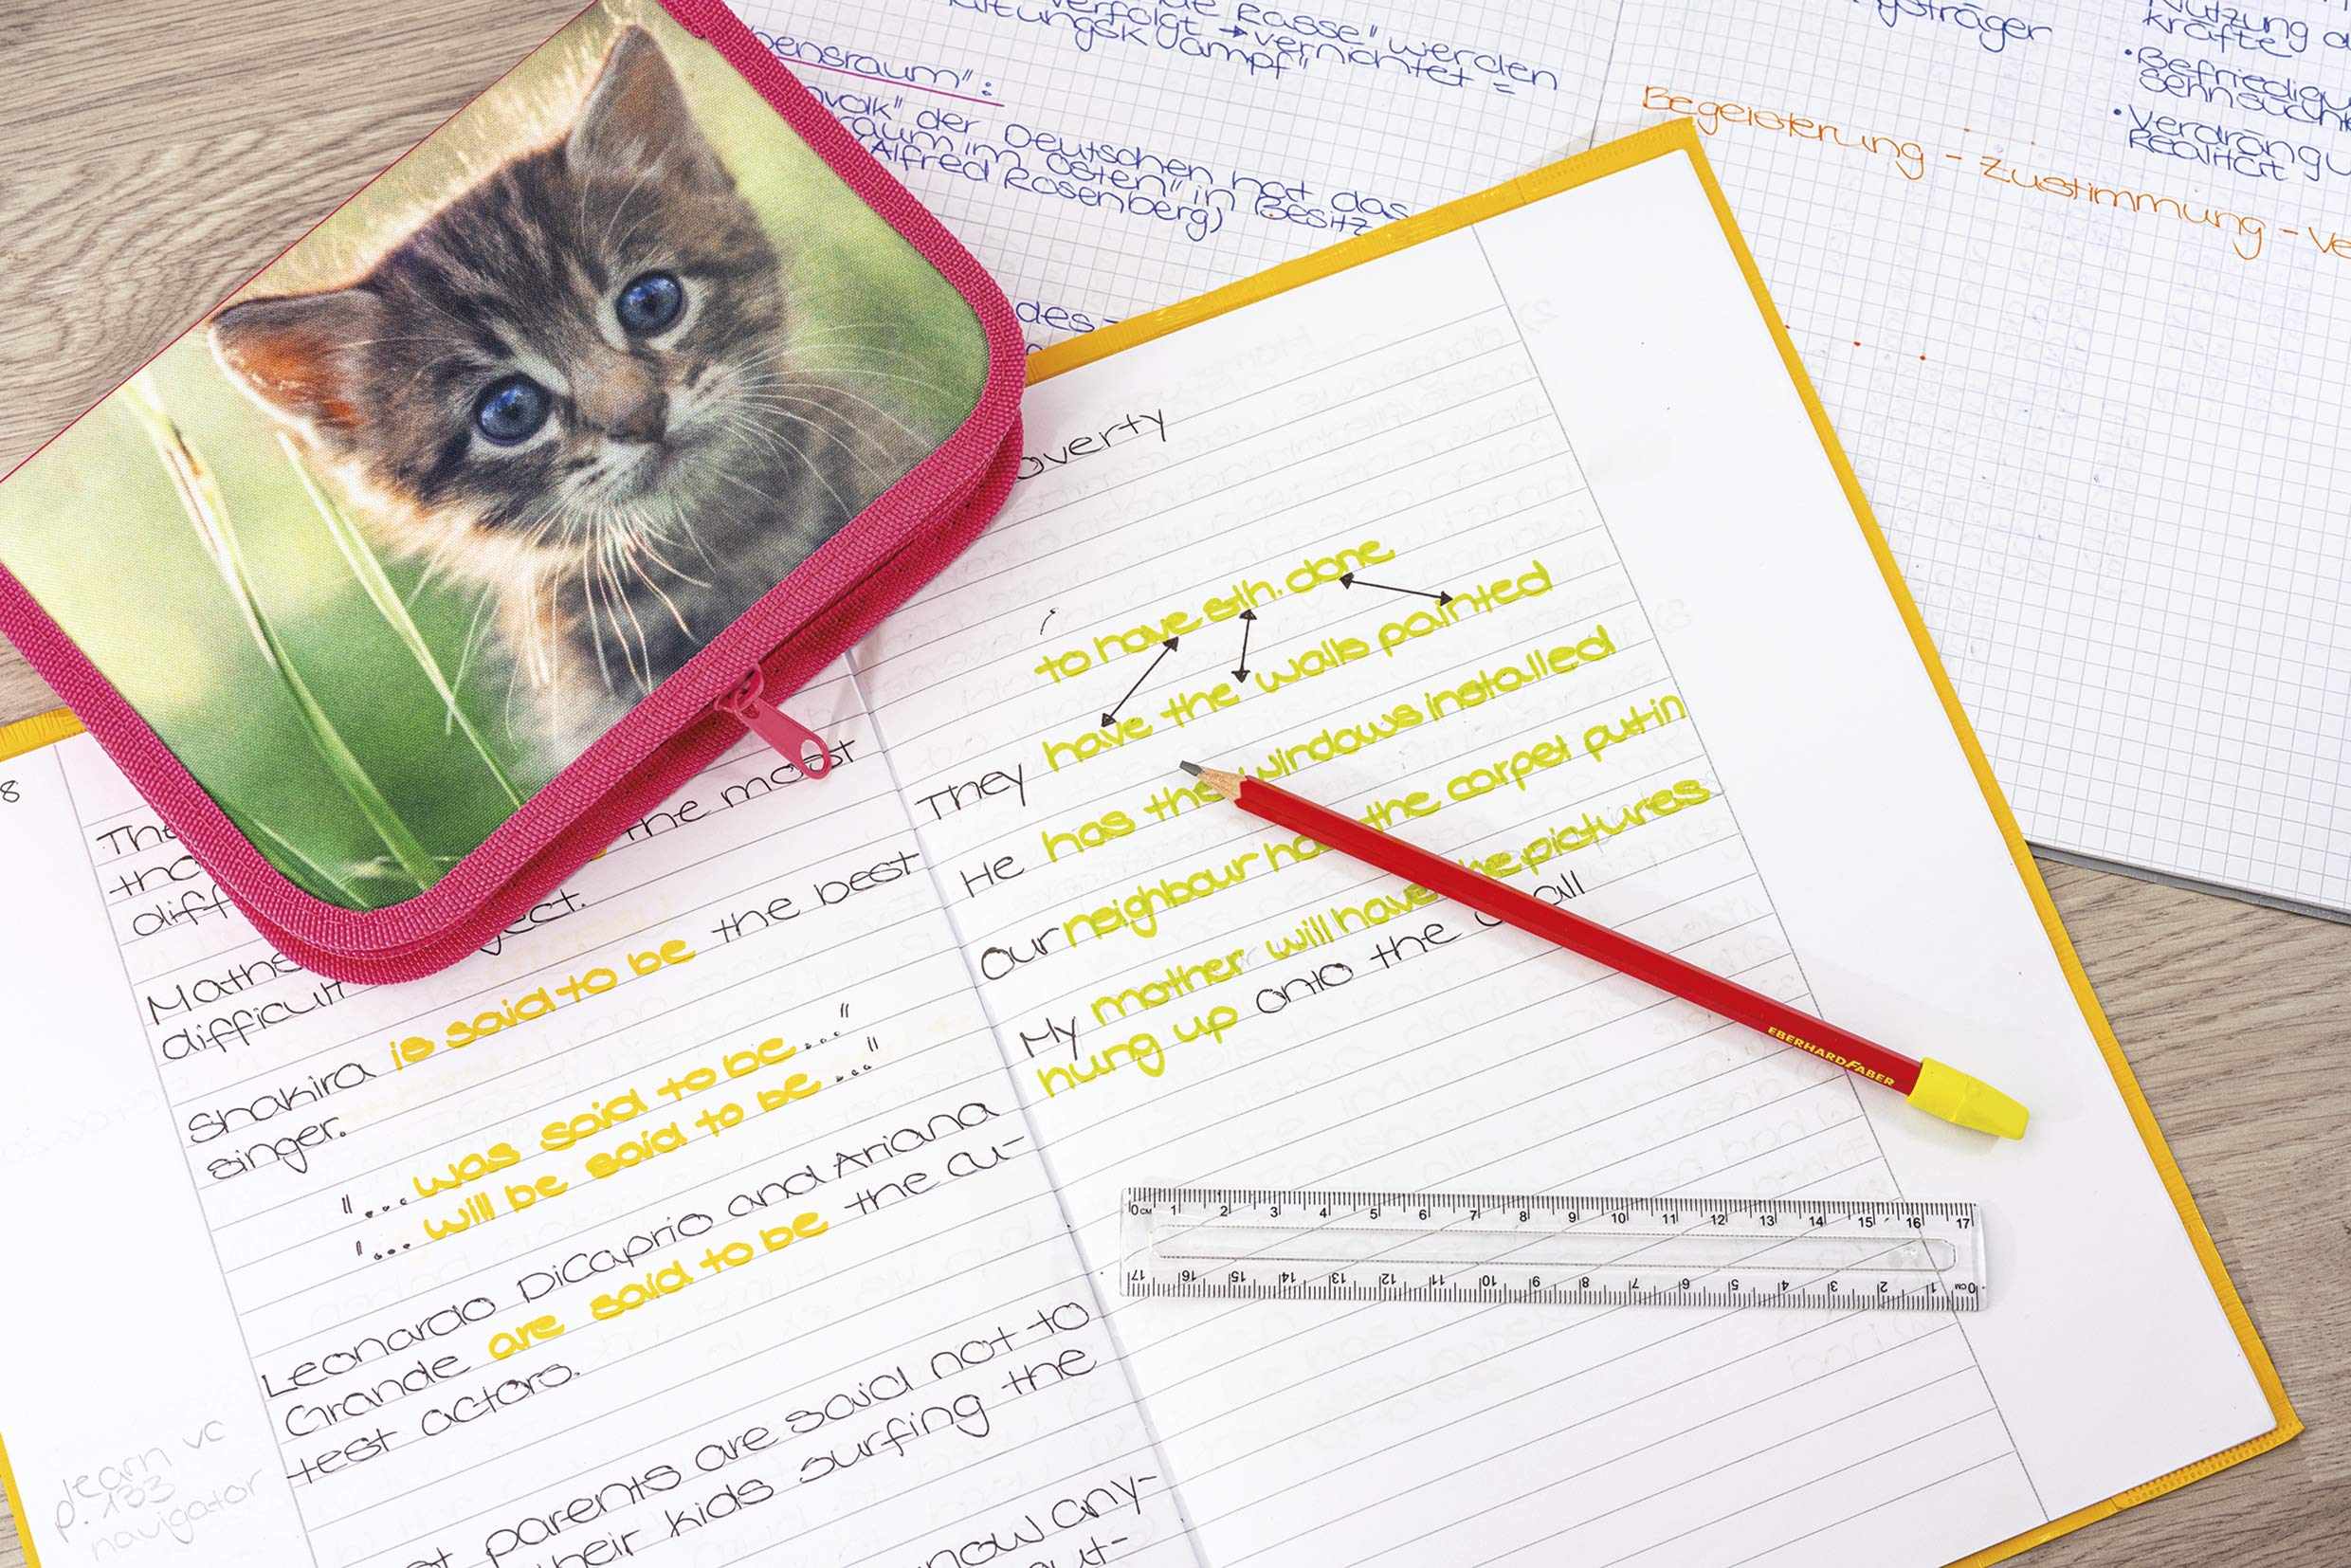 de Rasse" werden
verfolgt → vernichtet =
ltungskampf"
bensraum":
volk" der Deutschen hat das
raum im Osten" in Besitz
Alfred Rosenberg)
des
gsträger
Nutzung
kräfte
• Befriedigu
Sehnsucht
• Verdrängu
Realität
Begeisterung - Zustimmung - Ve
8
The
the most
diff
ject.
Mathe
difficult
Shakira is said to be the best
singer.
"... was said to be..."
"... will be said to be..."
Leonardo DiCaprio and Ariana
Grande are said to be the cu-
test actors.
parents are said not to
their kids surfing the
now any-
out-
learn vc
p. 133
navigator
overty
to have sth. done
They have the walls painted
He has the windows installed
Our neighbour had the carpet put in
My mother will have the pictures
hung up onto the wall
EBERHARD FABER
0 CM 1 2 3 4 5 6 7 8 9 10 11 12 13 14 15 16 17
0 CM 1 2 3 4 5 6 7 8 9 10 11 12 13 14 15 16 17